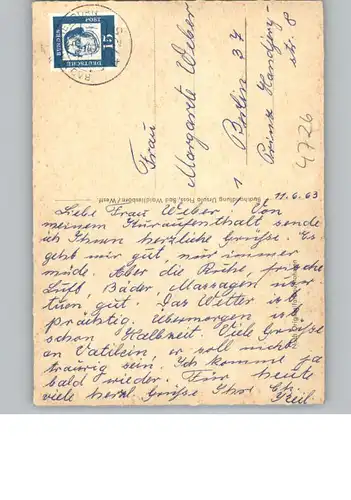 15
DEUTSCHE
POST
Frau
Margarete Weber
1 Berlin 37
Prinz Handjery-
str. 8
4726
Buchhandlung Ursula Post, Bad Waldliesborn/Westf.
11.6.63
Liebe Frau Weber! Von
meinem Kuraufenthalt sende
ich Ihnen herzliche Grüße. Es
geht mir gut, nur immer
müde. Aber die Ruhe, frische
Luft, Bäder, Massagen
tuen gut. Das Wetter ist
prächtig. Übermorgen ist
schon Halbzeit. Viele Grüße
an er soll nicht
traurig sein. Ich komme ja
bald wieder. Für heute
viele herzl. Grüße Ihre